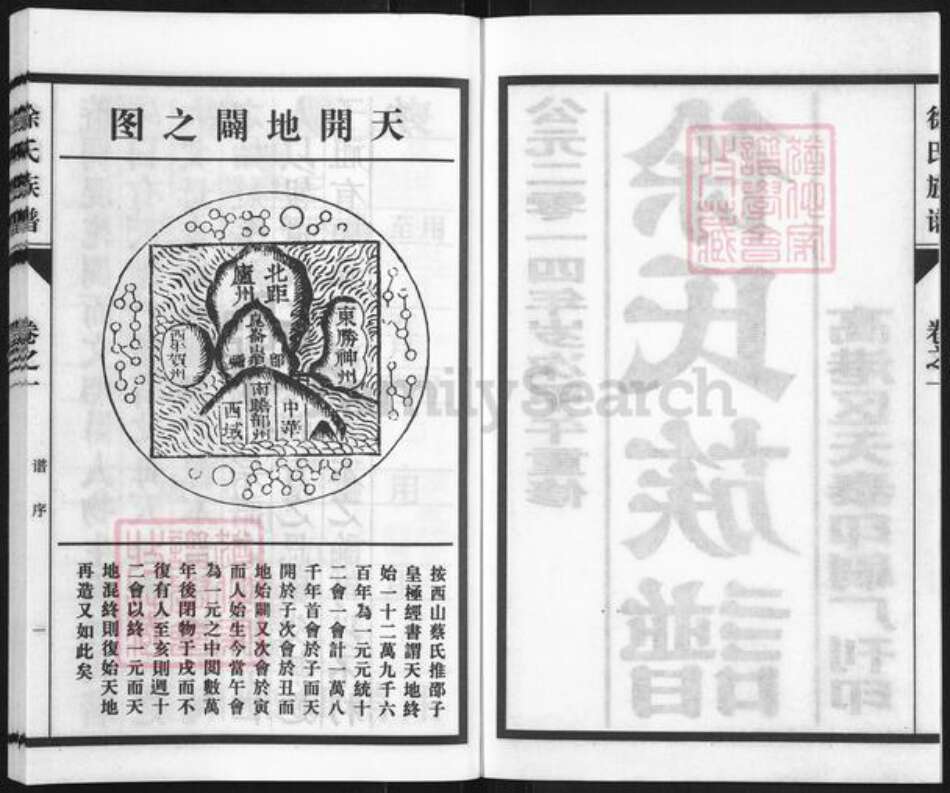 徐氏族譜
卷之一
徐氏族譜
公元二零一四年岁次甲午重修
高港区天泰印刷厂刊印
天開地闢之图
北距
盧州
東勝神州
西牛賀州
崑崙山
南贍部州
中華
西域
按西山蔡氏推邵子
皇極經書謂天地終
始一十二萬九千六
百年為一元元統十
二會一會計一萬八
千年首會於子而天
開於子次會於丑而
地始闢又次會於寅
而人始生今當午會
為一元之中閱數萬
年後閉物于戌而不
復有人至亥則週十
二會以終一元而天
地混終則復始天地
再造又如此矣
徐氏族譜
卷之一
谱序
一
FamilySearch